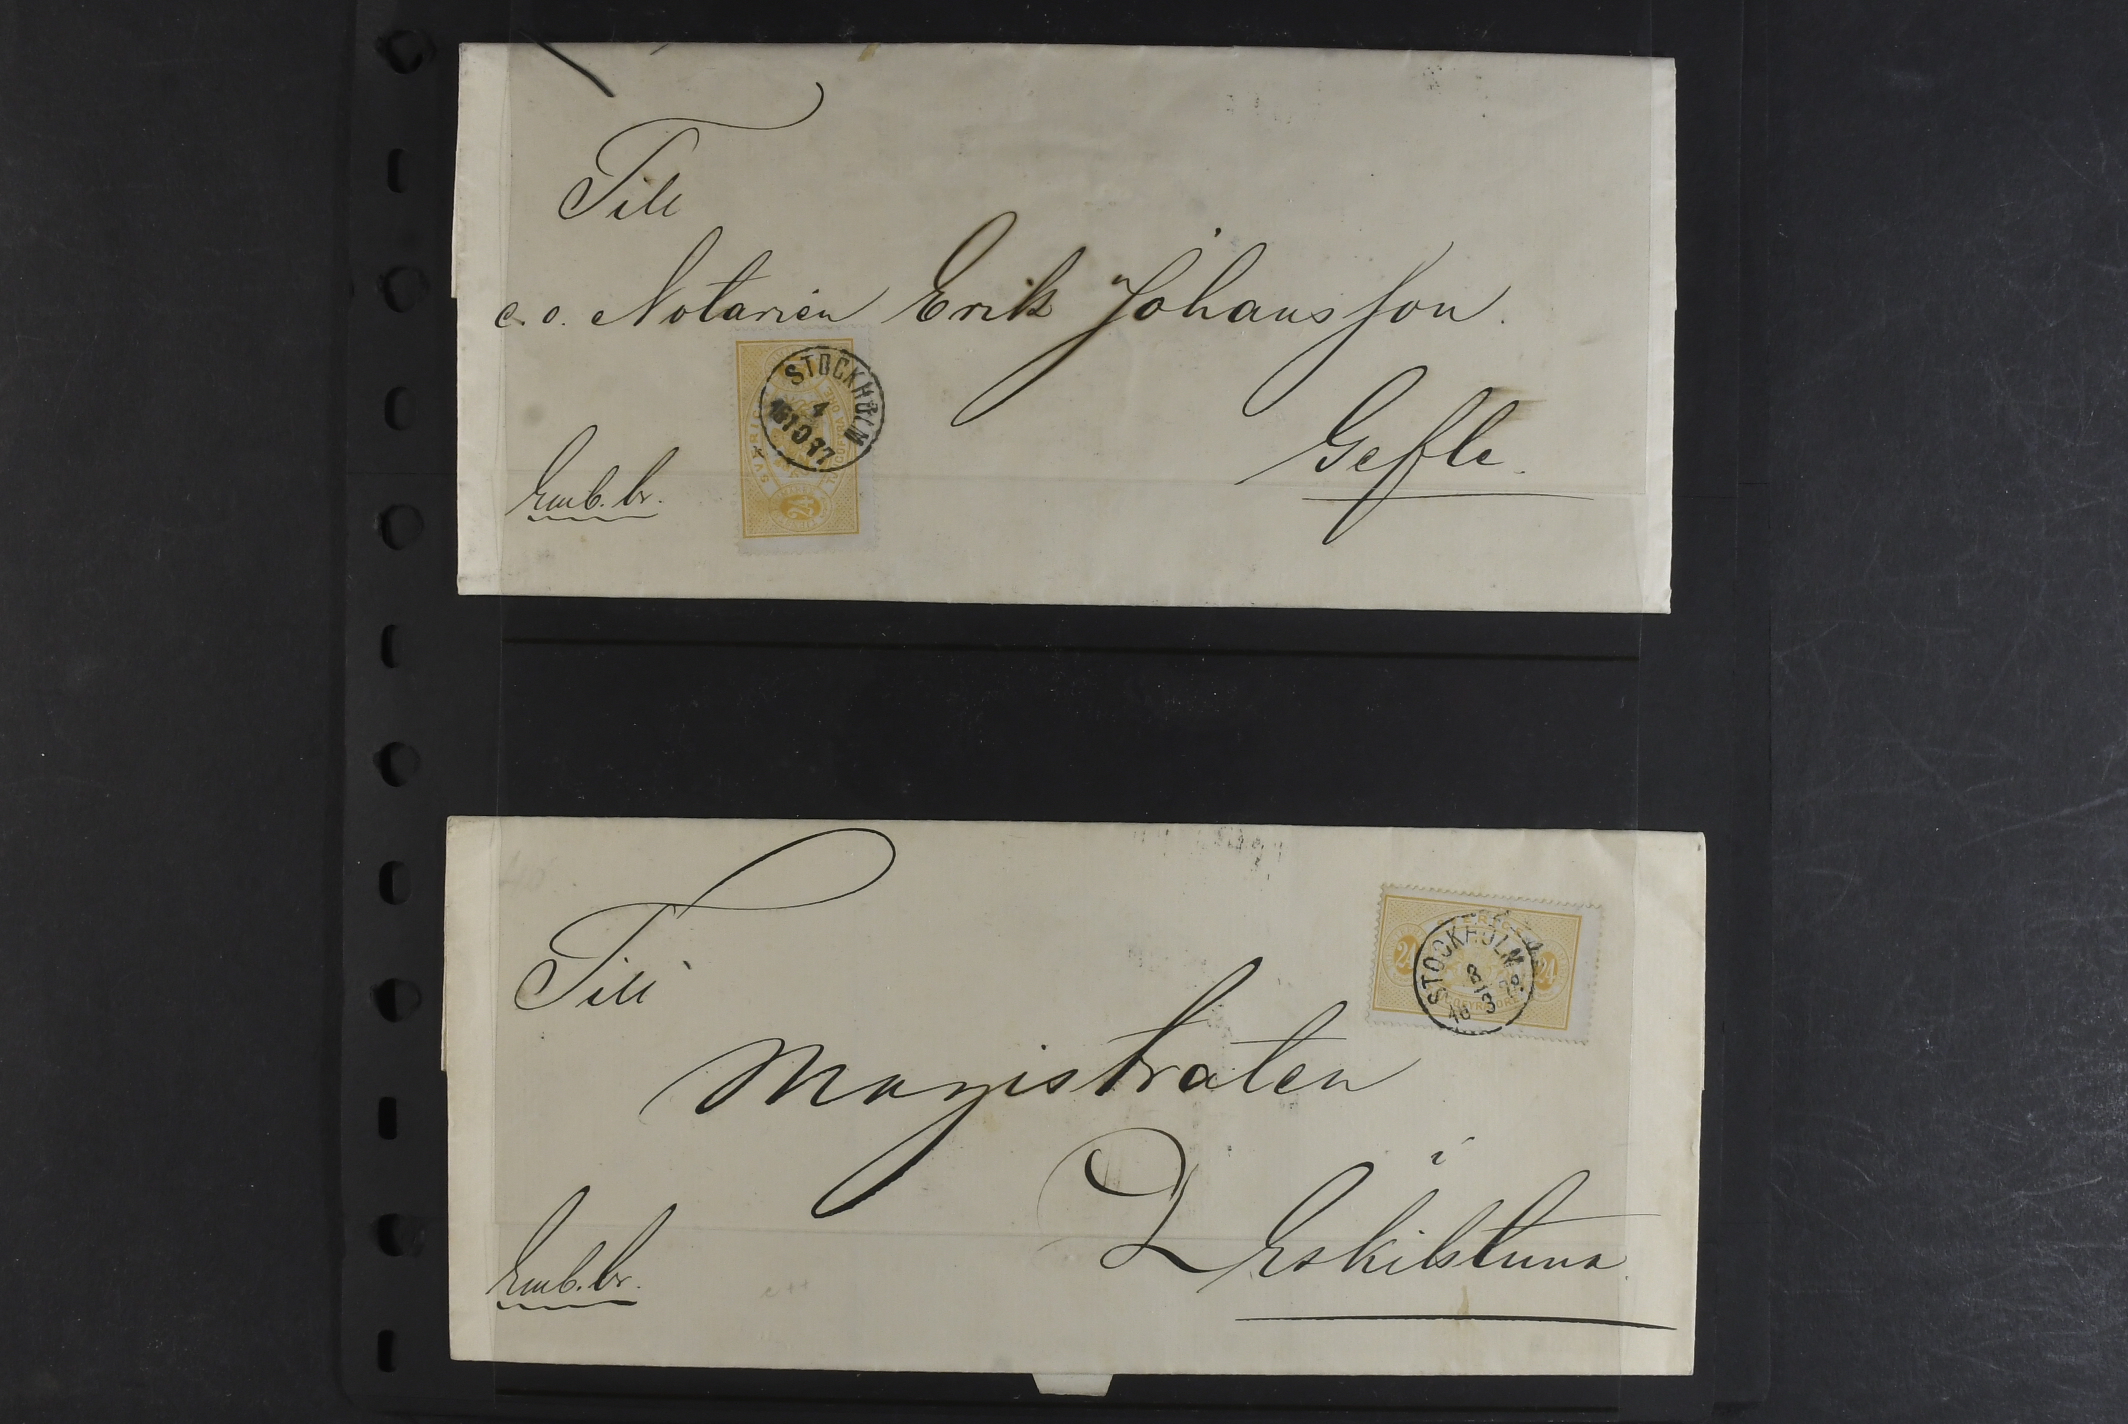 Till
e. o. Notarien Erik Johansson.
Gefle.
Emb. br.
STOCKHOLM
4
10 77
SVERIGE
24
Till
Magistraten
i
Eskilstuna.
Emb. br.
STOCKHOLM
8
3
24
24